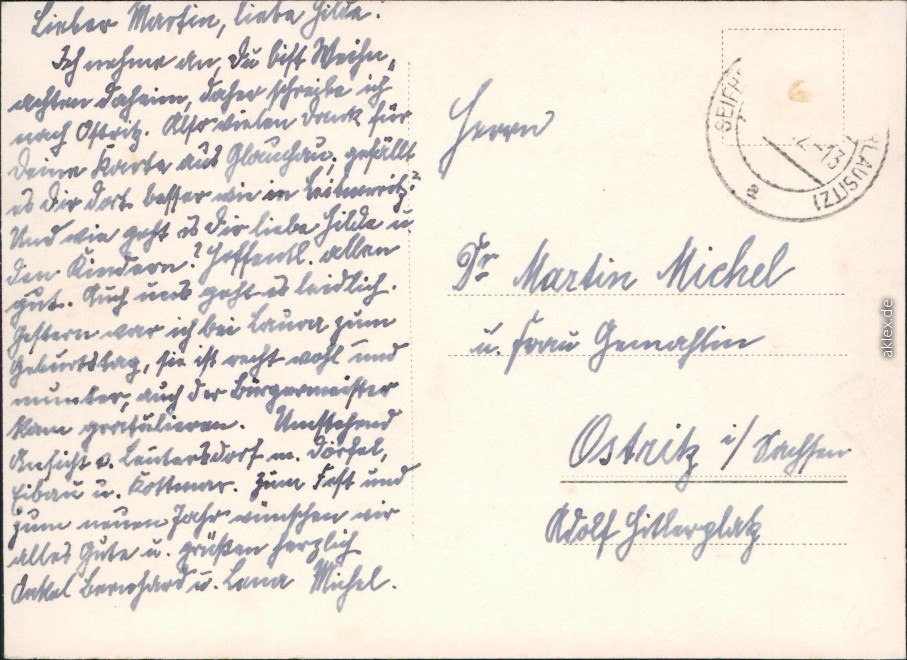 Lieber Martin, liebe Hilde!
Ich nehme an, Du bist Weihn-
achten daheim, daher schreibe ich
nach Ostritz. Also vielen Dank für
Deine Karte aus Glauchau, gefällt
es Dir dort besser wie in Leitmeritz?
Und wie geht es Dir liebe Hilde u
den Kindern? Hoffentl. allen
gut. Auch uns geht es leidlich.
Gestern war ich bei Laura zum
Geburtstag, sie ist recht wohl und
munter, auch der Bürgermeister
kam gratulieren. Umstehend
Ansicht v. Leutersdorf m. Dörfel,
Eibau u. Kottmar. Zum Fest und
zum neuen Jahr wünschen wir
alles Gute u. grüßen herzlich
Onkel Bernhard u. Lena Michel.
Herrn
Dr Martin Michel
u. Frau Gemahlin
Ostritz i/ Sachsen
Adolf Hitlerplatz
SEIFH
LAUSITZ)
-13
a
aklex.de